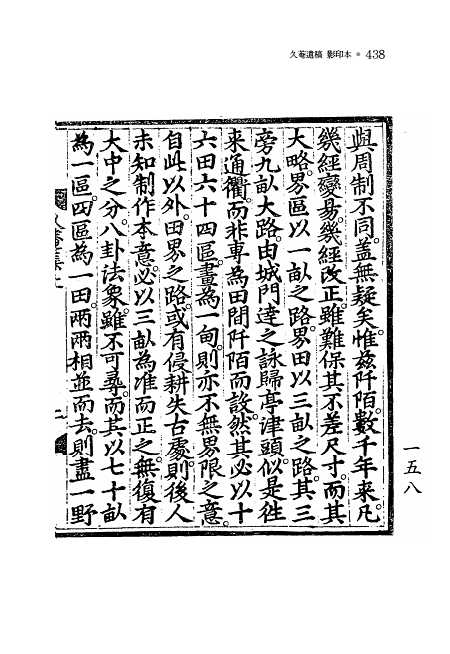 久菴遺稿 影印本 • 438
與周制不同。盖無疑矣。惟玆阡陌。數千年来。凡
幾經變易。幾經改正。雖難保其不差尺寸。而其
大略。界區以一畒之路。界田以三畒之路。其三
旁九畒大路。由城門達之詠歸亭津頭。似是徃
来通衢。而非專為田間阡陌而設。然其必以十
六田六十四區。畫為一甸。則亦不無界限之意。
自此以外。田界之路。或有侵耕失古處。則後人
未知制作本意。必以三畒為准而正之。無復有
大中之分。八卦法象。雖不可尋。而其以七十畒
為一區。四區為一田。兩兩相並而去。則盡一野
一五八